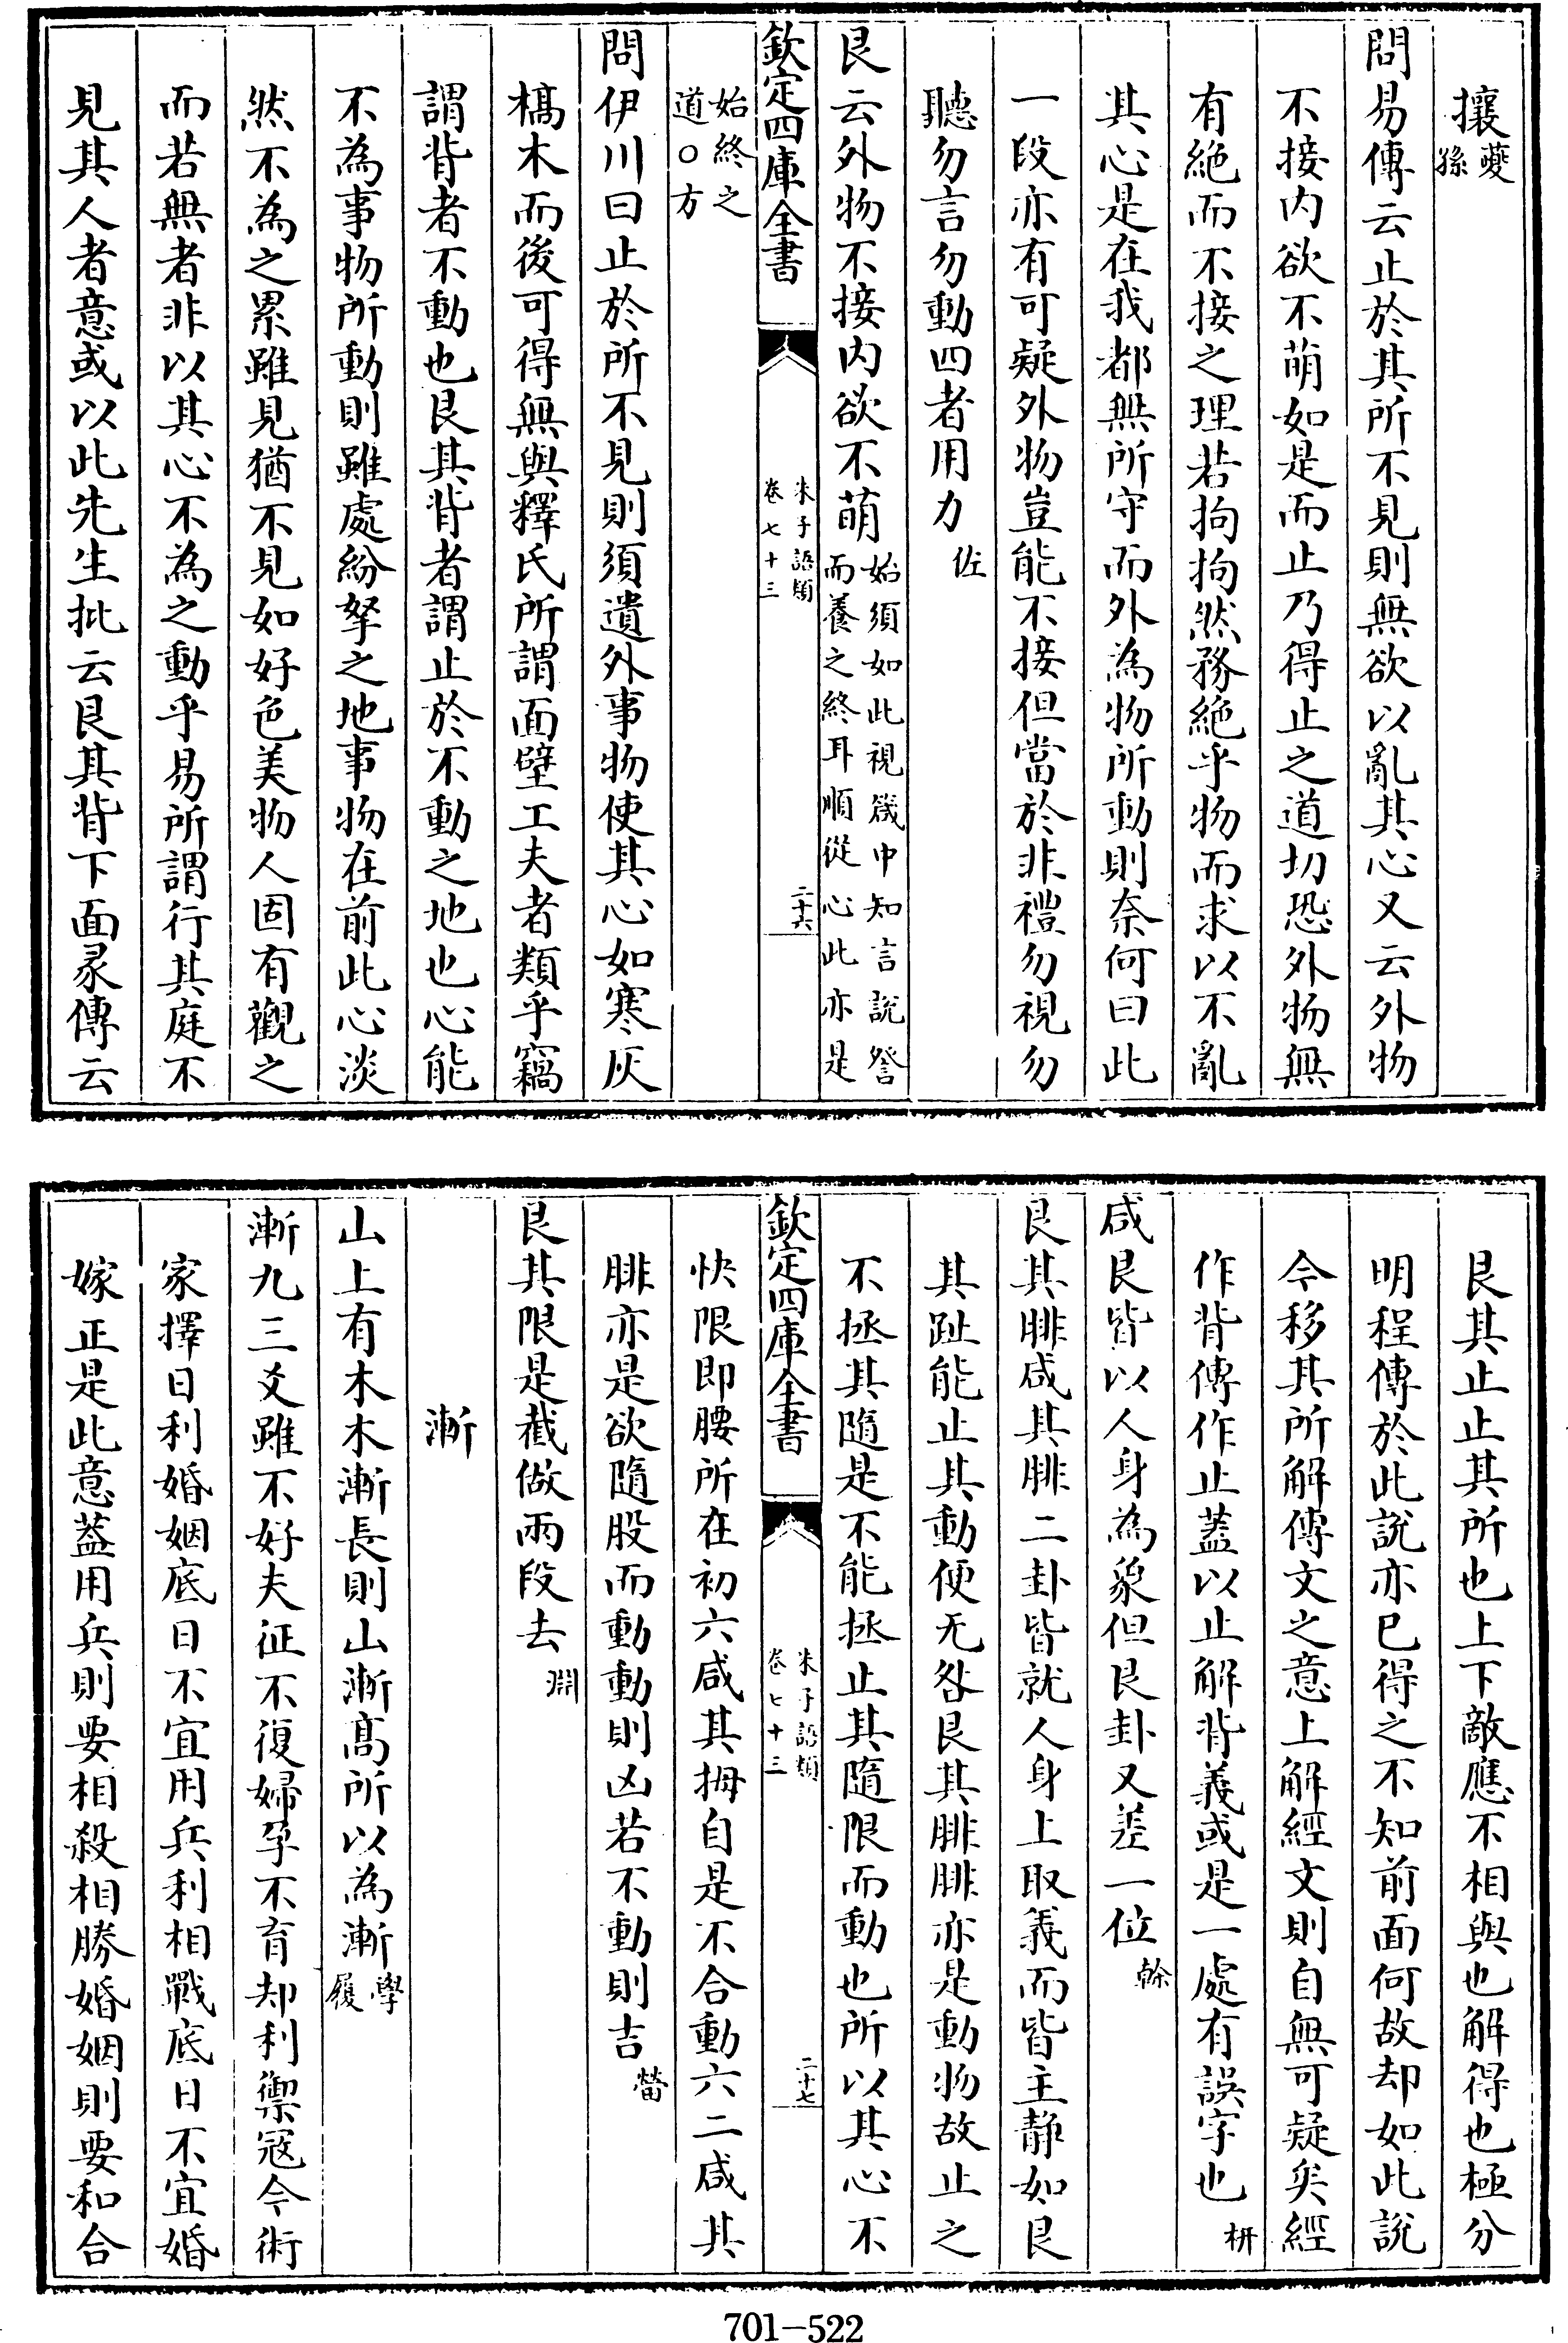 攘夔孫
問易傳云止於其所不見則無欲以亂其心又云外物
不接内欲不萌如是而止乃得止之道切恐外物無
有絶而不接之理若拘拘然務絶乎物而求以不亂
其心是在我都無所守而外為物所動則奈何曰此
一段亦有可疑外物豈能不接但當於非禮勿視勿
聽勿言勿動四者用力佐
艮云外物不接内欲不萌始須如此視箴中知言說詧而養之終耳順從心此亦是
欽定四庫全書
朱子語類
卷七十三
二十六
始終之道○方
問伊川曰止於所不見則須遺外事物使其心如寒灰
槁木而後可得無與釋氏所謂面壁工夫者類乎竊
謂背者不動也艮其背者謂止於不動之地也心能
不為事物所動則雖處紛拏之地事物在前此心淡
然不為之累雖見猶不見如好色美物人固有觀之
而若無者非以其心不為之動乎易所謂行其庭不
見其人者意或以此先生批云艮其背下面彖傳云
艮其止止其所也上下敵應不相與也解得也極分
明程傳於此說亦已得之不知前面何故却如此說
今移其所解傳文之意上解經文則自無可疑矣經
作背傳作止蓋以止解背義或是一處有誤字也枅
咸艮皆以人身為象但艮卦又差一位榦
艮其腓咸其腓二卦皆就人身上取義而皆主靜如艮
其趾能止其動便无咎艮其腓腓亦是動物故止之
不拯其隨是不能拯止其隨限而動也所以其心不
欽定四庫全書
朱子語類
卷七十三
二十七
快限即腰所在初六咸其拇自是不合動六二咸其
腓亦是欲隨股而動動則凶若不動則吉㽦
艮其限是截做兩段去淵
漸
山上有木木漸長則山漸髙所以為漸學履
漸九三爻雖不好夫征不復婦孕不育却利禦冦今術
家擇日利婚姻底日不宜用兵利相戰底日不宜婚
嫁正是此意蓋用兵則要相殺相勝婚姻則要和合
701-522